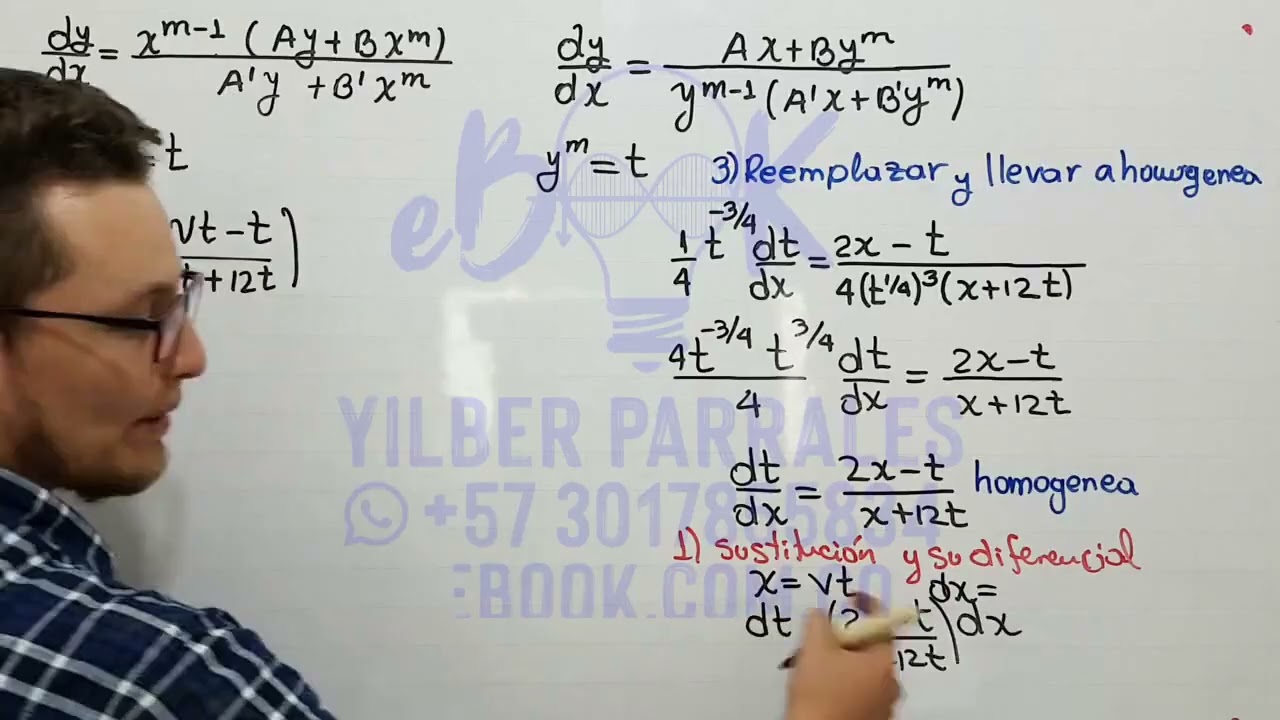 dy/dx = x^{m-1} (Ay+Bx^m) / A'y + B'x^m
= t
vt - t / t + 12t )
dy/dx = Ax+By^m / y^{m-1} (A'x + B'y^m)
y^m = t
3) Reemplazar y llevar a homogenea
1/4 t^{-3/4} dt/dx = 2x - t / 4(t^{1/4})^3 (x+12t)
4t^{-3/4} t^{3/4} / 4 dt/dx = 2x-t / x+12t
dt/dx = 2x-t / x+12t homogenea
1) sustitución y su diferencial
x = vt dx =
dt (2 t / 12t ) dx
eBOOK
YILBER PARRALES
+57 3017
EBOOK.COM.CO